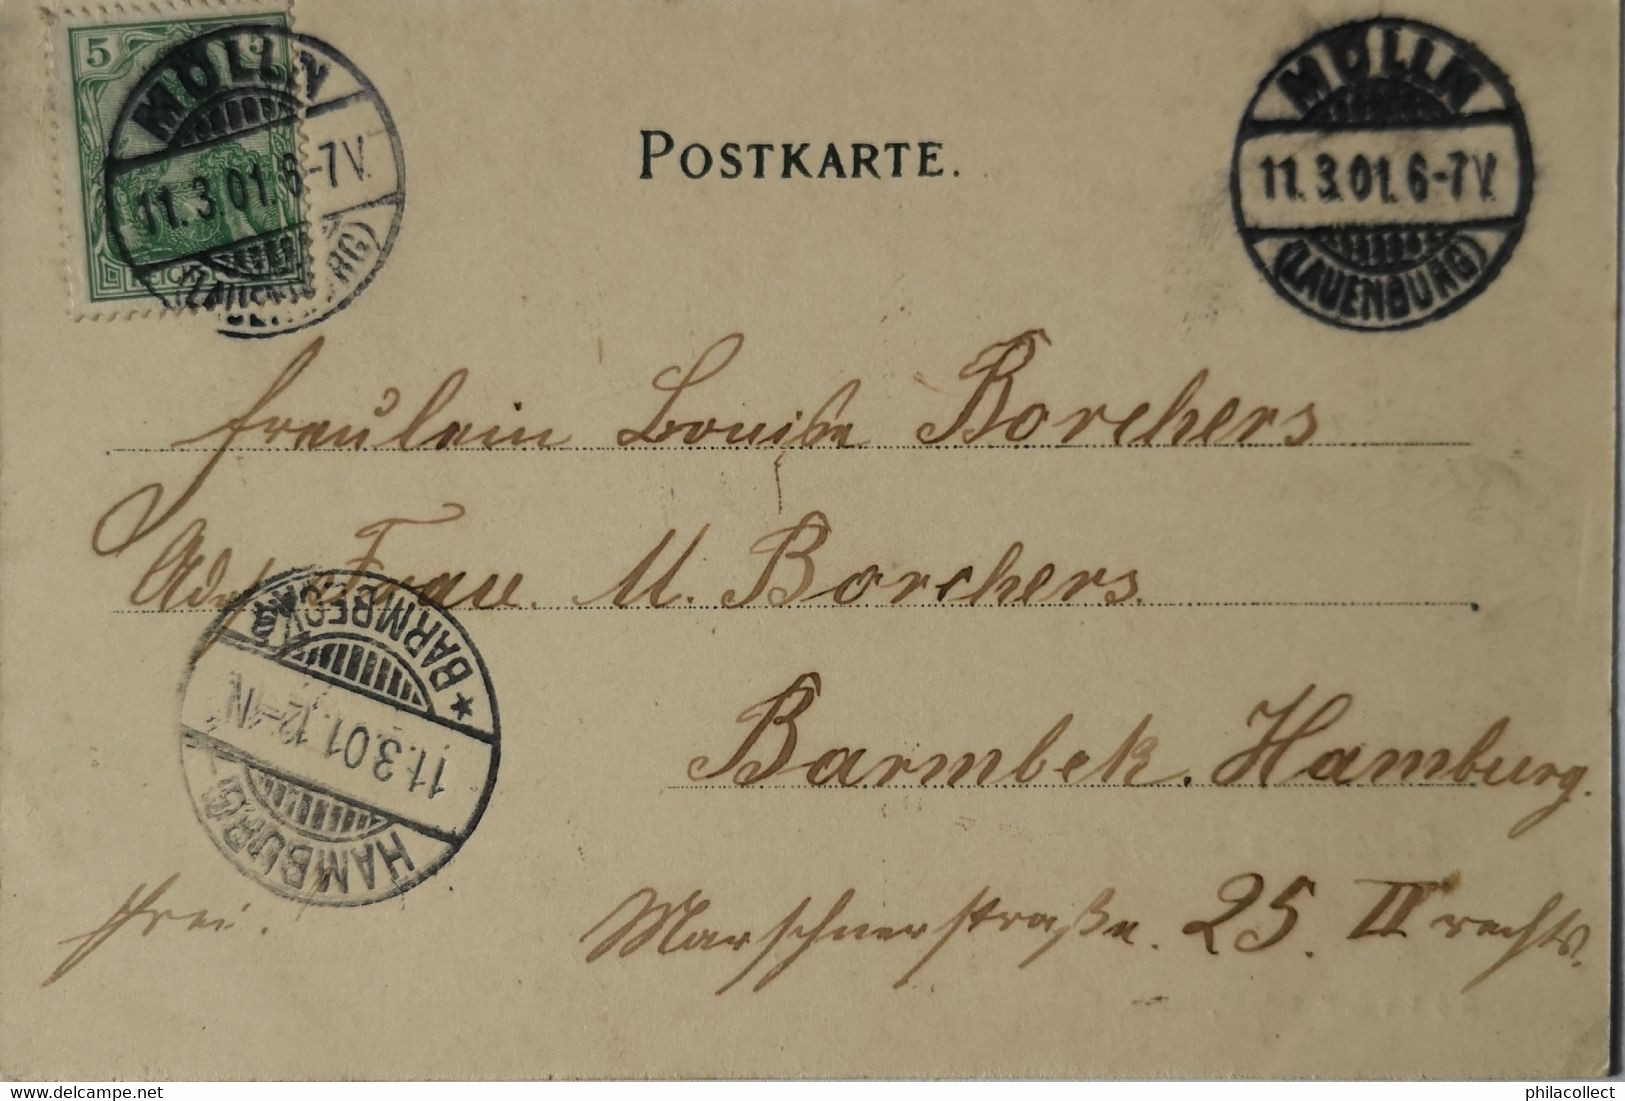 5
MÖLLN
11.3.01. 6-7 V.
(LAUENBURG)
MÖLLN
11.3.01. 6-7 V.
(LAUENBURG)
POSTKARTE.
Fräulein Louise Borchers
Adr. Frau M. Borchers.
Barmbek. Hamburg.
Marschnerstraße. 25. II rechts.
frei.
HAMBURG-
11.3.01. 12-1N.
* BARMBECK
philacollect